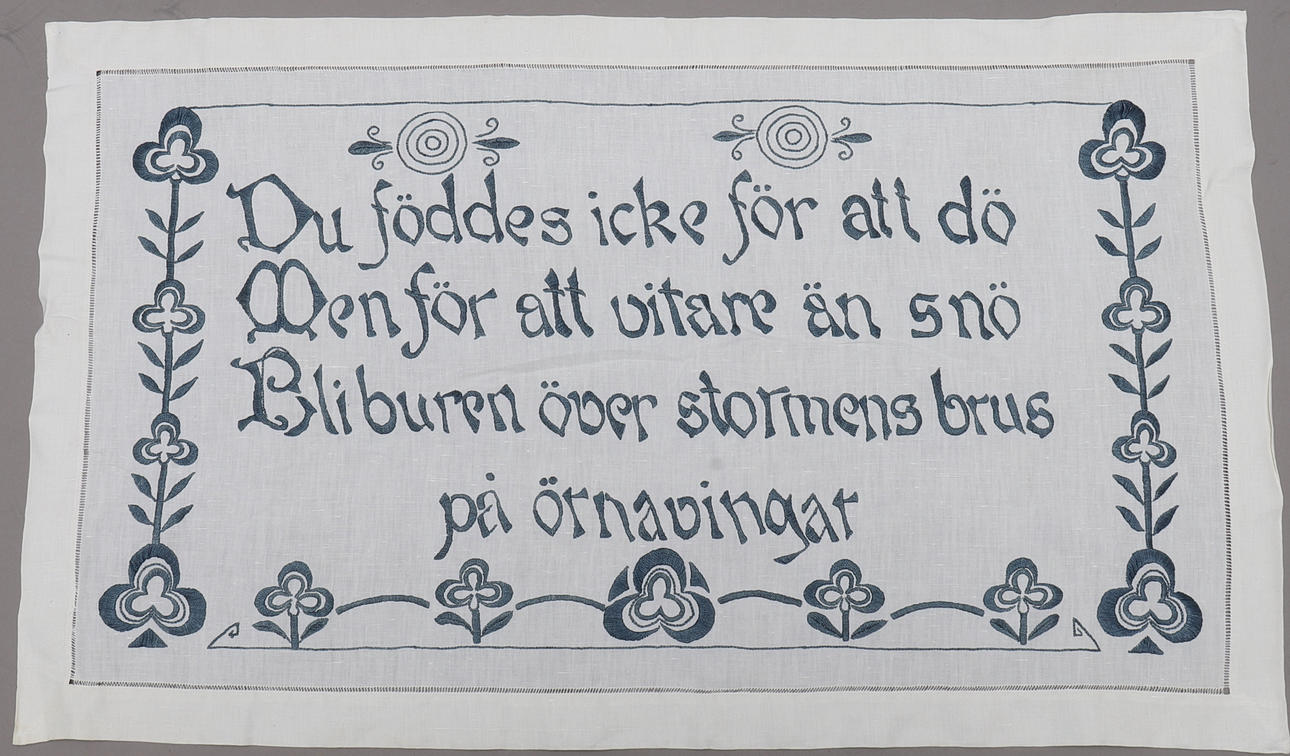 Du föddes icke för att dö
Men för att vitare än snö
Bli buren över stormens brus
på örnavingar